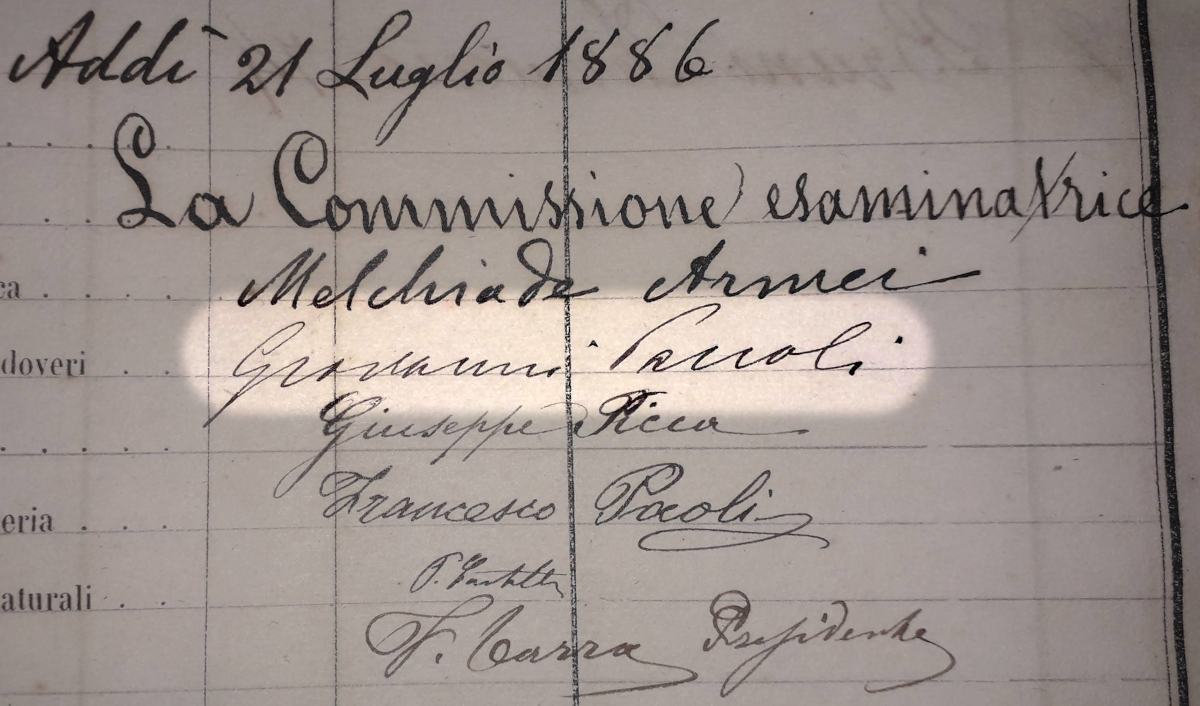 Addì 21 Luglio 1886
La Commissione esaminatrice
ca . . . . . Melchiade Armei
doveri . . Giovanni
. . . . . Giuseppe Ricca
eria . . . Francesco Paoli
aturali . .
F. Carra Presidente